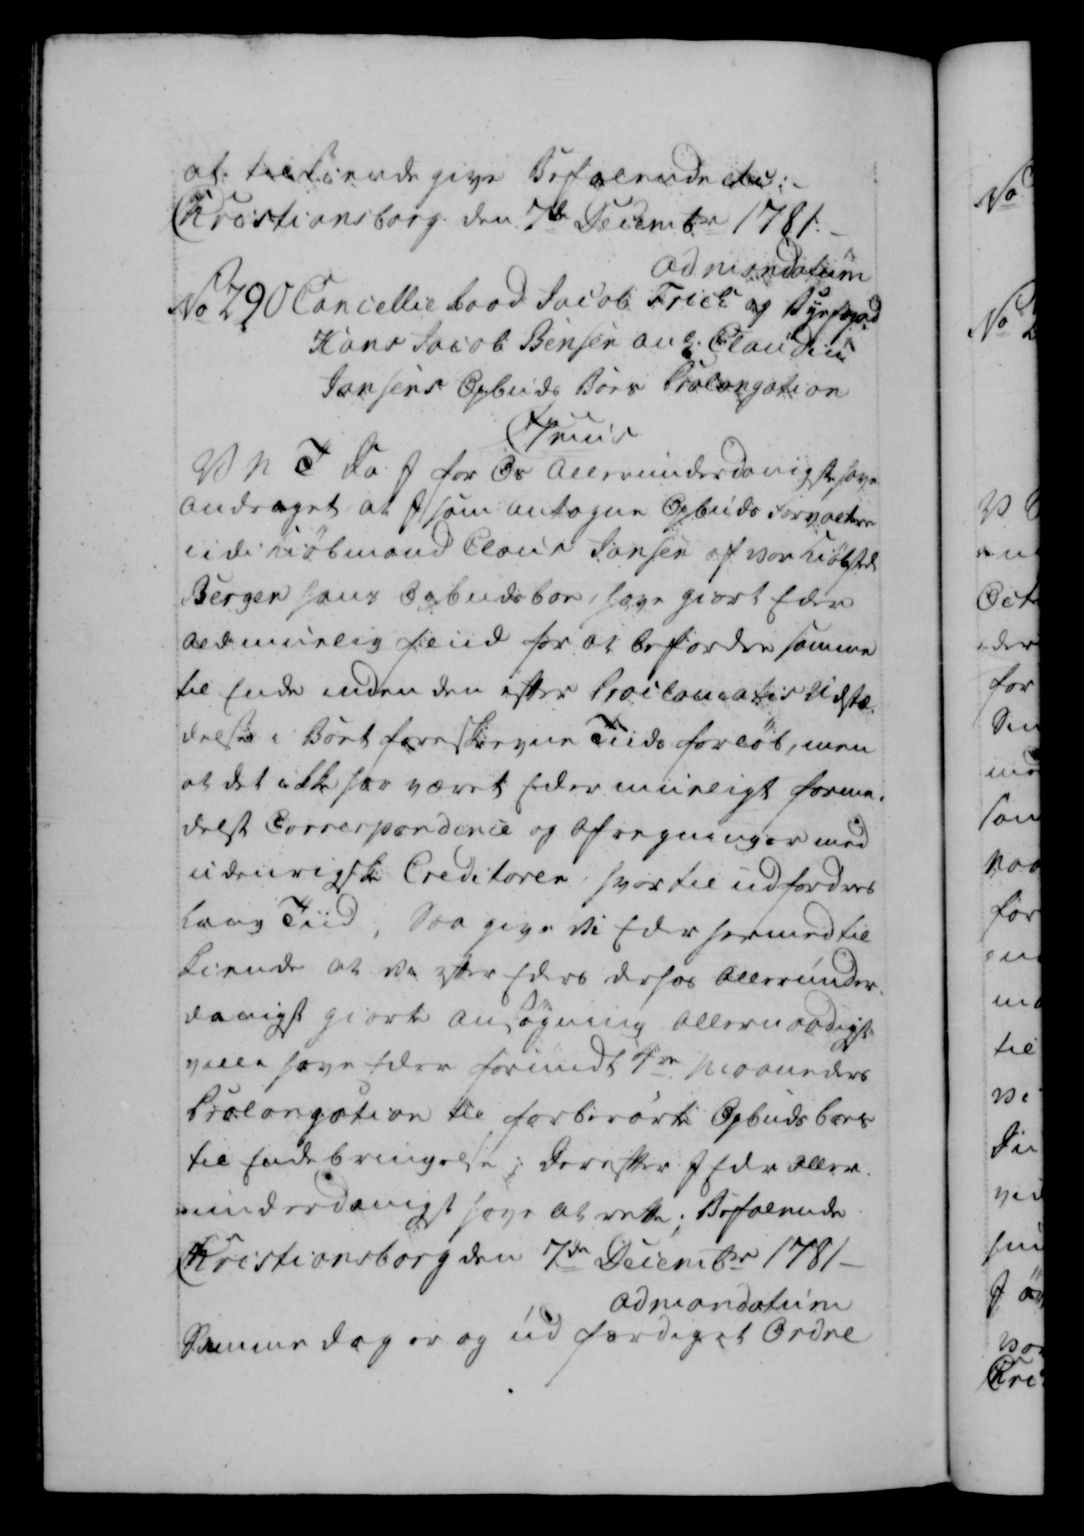 at tilkiende give Befalende etc:-
Christiansborg den 7de Decembr 1781.-
admandatum
No 290 Cancellie Raad Jacob Frick og Byefogd
Hans Jacob Bensen ang. Claudii
Jansens Opbuds Boes Prolongation
V n T Da I for Os Allerunderdanigst have
andraget at I som antagne Opbuds Forvaltere
udi Kiøbmand Claus Jansen af vor Kiøbsted
Bergen hans Opbudsboe, have giort Eder
all muelig Fliid for at befordre samme
til Ende inden den efter Proclamatis Udstæ-
delse i Boet foreskrevne Tiids forløb, men
at det ikke har været Eder mueligt forme-
delst Correspondence og Afregninger med
udenrigske Creditorer, hvortil udfordres
lang Tiid, Saa give Vi Eder hermed til
kiende at Vi efter Eders derhos allerunder-
danigst giorte Ansøgning allernaadigst
ville have Eder forundt 4re Maaneders
Prolongation til forberørte Opbuds boes
til Endebringelse; derefter I Eder aller-
underdanigst have at rette; Befalende
Christiansborg den 7de Decembr 1781-
admandatum
Samme dag er og udfærdiget Ordre